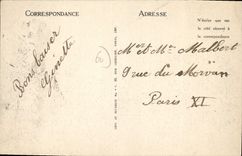 CORRESPONDANCE
Bons baiser
Ginette
ADRESSE
N'écrire que sur
le côté réservé à
la correspondance
Mme et Mr Malbert
9 rue du Morvan
Paris XI